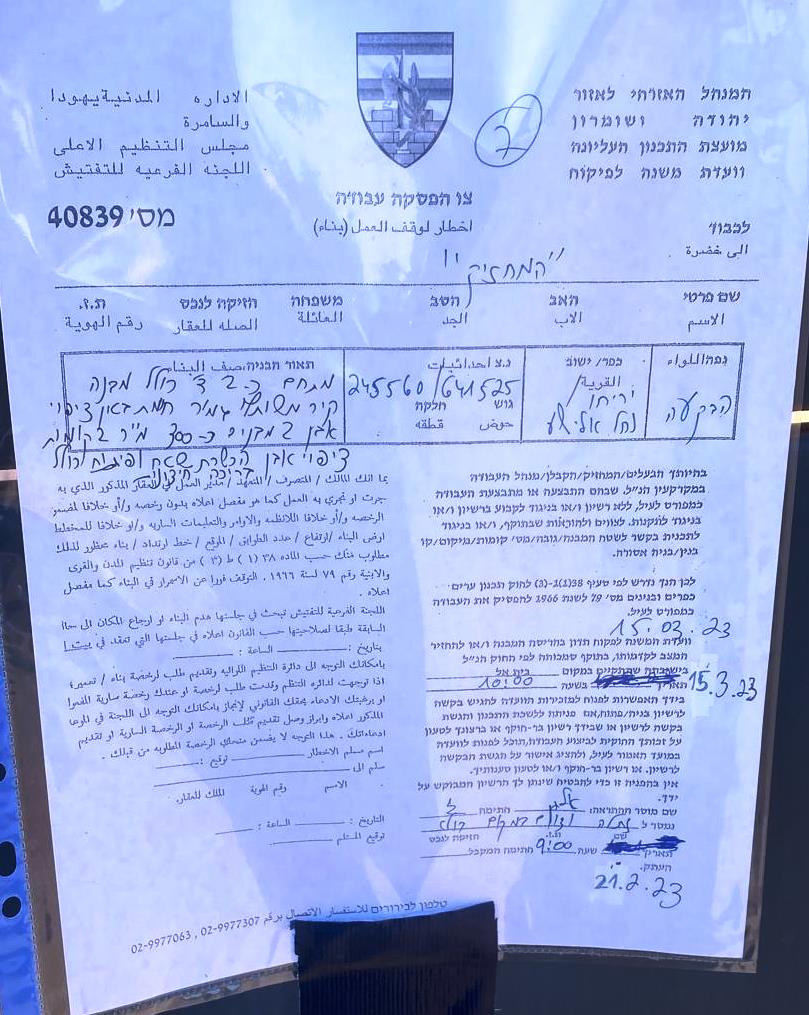 המנהל האזרחי לאזור
יהודה ושומרון
מועצת התכנון העליונה
וועדת משנה לפיקוח
الاداره المدنية يهودا
والسامرة
مجلس التنظيم الاعلى
اللجنه الفرعيه للتفتيش
2
צו הפסקה עבודה
اخطار لوقف العمل (بناء)
מס' 40839
לכבוד
الى حضرة
"המחזיק"
שם פרטי האב הסב משפחה חזיקה לנכס ת.ז.
الاسم الاب الجد العائلة الصله للعقار رقم الهوية
נפה اللواء
הבקעה
כפר/ישוב
القرية/
יריחו
נחל אלישע
נ.צ احداثيات
245560/641525
גוש חלקה
حوض قطعه
תאור הבניה: صف البناء
מתחם כ-2 ד' כולל מבנה
קיר
אבן 2 מבנים כ-300 מ"ר 2 קומות
ציפוי אבן הכשרת שטח ופיתוח כולל
בריכה
בהיותך הבעלים/המחזיק/הקבלן/מנהל העבודה
במקרקעין הנ"ל, שבהם התבצעה או מתבצעת העבודה
כמפורט לעיל, ללא רשיון ו/או בניגוד לקבוע ברשיון ו/או
בניגוד לתקנות, לצווים ולהוראות שבתוקף, ו/או בניגוד
לתכנית בקשר לשטח המבנה/גובה/מס' קומות/מיקום/קו
בנין/בניה אסורה.
לכן הנך נדרש לפי סעיף 38(1)ב-(3) לחוק תכנון ערים
כפרים ובנינים מס' 79 לשנת 1966 להפסיק את העבודה
כמפורט לעיל.
15.03.23
וועדת המשנה לפיקוח תדון בהריסת המבנה ו/או להחזיר
המצב לקדמותו, בתוקף סמכותה לפי החוק הנ"ל
בישיבתה שתתקיים במקום בית אל
תאריך בשעה 10:00
15.3.23
בידך האפשרות לפנות למזכירות הוועדה להגיש בקשה
לרשיון בניה/פתוח, אם פניתה ללשכת התכנון והגשת
בקשה לרשיון או שבידך רשיון בר-תוקף או ברצונך לטעון
על זכותך החוקית לביצוע העבודה, תוכל לפנות לוועדה
במועד האמור לעיל, ולהציג אישור על הגשת הבקשה
לרשיון, או רשיון בר-תוקף ו/או לטעון טענותיך.
אין בהפניה זו כדי להבטיח שינתן לך הרשיון המבוקש על
ידך.
שם מוסר ההתראה: אלי חתימה
נמסר ל
שם ת.ז. חזיקה לנכס
תאריך שעה 9:00 חתימה המקבל
העתק:
21.2.23
بما انك المالك / المتصرف / المتعهد / مدير العمل في العقار المذكور الذي به
جرت او تجري به العمل كما هو مفصل اعلاه بدون رخصه و/او خلافا لمضمون
الرخصه و/او خلافا للانظمه والاوامر والتعليمات الساريه و/او خلافا للمخطط
ارض البناء / ارتفاع / عدد الطوابق / الموقع / خط ارتداد / بناء محظور لذلك
مطلوب منك حسب الماده ٣٨ (١) ط (٣) من قانون تنظيم المدن والقرى
والابنية رقم ٧٩ لسنة ١٩٦٦. التوقف فورا عن الاستمرار في البناء كما مفصل
اعلاه.
اللجنه الفرعية للتفتيش تبحث في جلستها هدم البناء او ارجاع المكان الى حالته
السابقة طبقا لصلاحيتها حسب القانون اعلاه في جلستها التي تعقد في
بتاريخ: الساعة:
بامكانك التوجه الى دائرة التنظيم اللوائيه وتقديم طلب لرخصة بناء / تعمير؛
اذا توجهت لدائره التنظيم وقدمت طلب لرخصة او عندك رخصة سارية المفعول
او برغبتك الادعاء بحقك القانوني لانجاز بامكانك التوجه الى اللجنة في الموعد
المذكور اعلاه وابراز وصل تقديم طلب الرخصة او الرخصة السارية او تقديم
ادعاءاتك. هذا التوجه لا يضمن منحك الرخصة المطلوبه من قبلك.
اسم مسلم الاخطار توقيع:
سلم الى
الاسم رقم الهوية الملك للعقار.
التاريخ: الساعة:
توقيع المستلم
טלפון לבירורים للاستفسار الاتصال برقم 02-9977307, 02-9977063